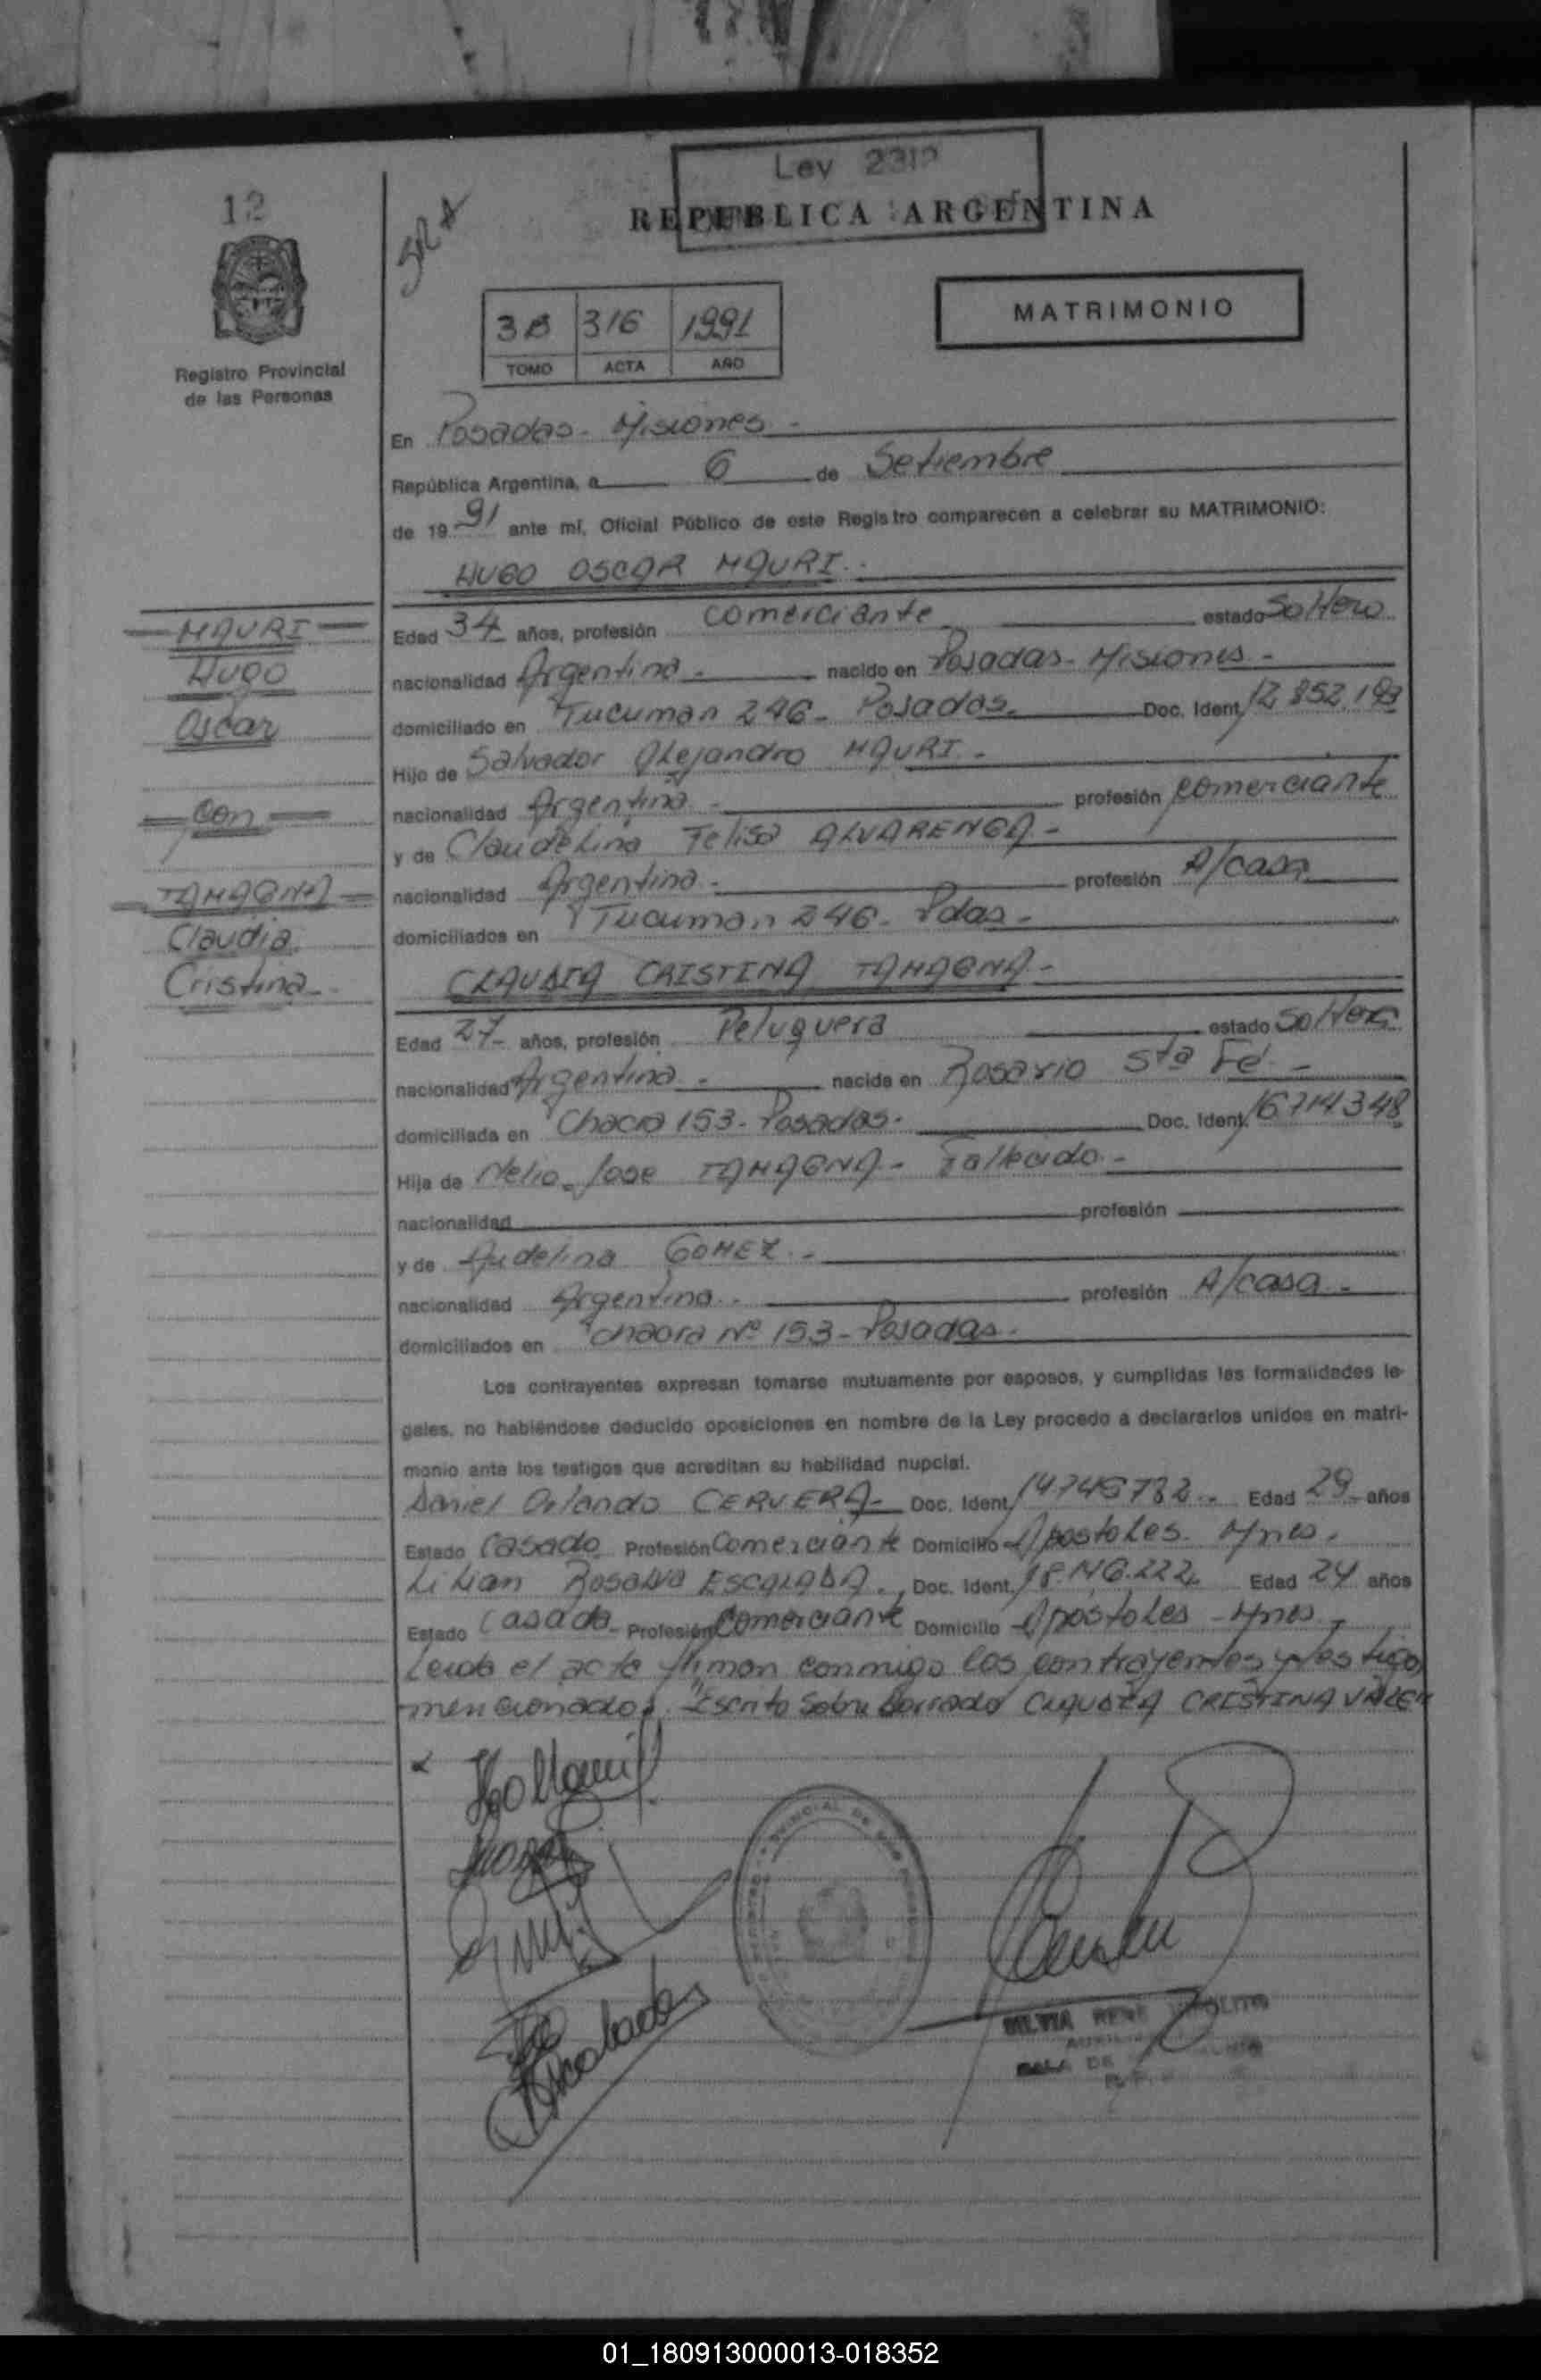 12
Ley 2312
REPUBLICA ARGENTINA
MATRIMONIO
3B 316 1991
TOMO ACTA AÑO
Registro Provincial
de las Personas
En Posadas - Misiones -
República Argentina, a 6 de Setiembre
de 19 91 ante mí, Oficial Público de este Registro comparecen a celebrar su MATRIMONIO:
HUGO OSCAR MAURI.-
MAURI
Hugo
Oscar
con
TAMAGNA
Claudia
Cristina
Edad 34 años, profesión comerciante estado Soltero
nacionalidad Argentina.- nacido en Posadas - Misiones -
domiciliado en Tucuman 246 - Posadas. Doc. Ident. 12.852.193
Hijo de Salvador Alejandro MAURI -
nacionalidad Argentina - profesión comerciante
y de Claudelina Felisa ALVARENGA -
nacionalidad Argentina - profesión A/casa
domiciliados en Tucuman 246 - Pdas -
CLAUDIA CRISTINA TAMAGNA -
Edad 27 años, profesión Peluquera estado Soltera
nacionalidad Argentina - nacida en Rosario Sta Fé -
domiciliada en Chacra 153 - Posadas - Doc. Ident. 16714348
Hija de Nelio Jose TAMAGNA - Fallecido -
nacionalidad profesión
y de Audelina GOMEZ -
nacionalidad Argentina - profesión A/casa -
domiciliados en Chacra Nº 153 - Posadas -
Los contrayentes expresan tomarse mutuamente por esposos, y cumplidas las formalidades le-
gales, no habiéndose deducido oposiciones en nombre de la Ley procedo a declararlos unidos en matri-
monio ante los testigos que acreditan su habilidad nupcial.
Daniel Orlando CERVERA - Doc. Ident. 14746732 - Edad 29 años
Estado Casado Profesión Comerciante Domicilio Apostoles - Mnes.
Lilian Rosalva ESCALADA. Doc. Ident. 18.146.222 Edad 24 años
Estado Casada Profesión Comerciante Domicilio Apostoles - Mnes -
Leida el acta firman conmigo los contrayentes y testigos
mencionados. Escrito Sobre Borrado CLAUDIA CRISTINA VALEN
SILVIA RENE
SALA DE
01_180913000013-018352